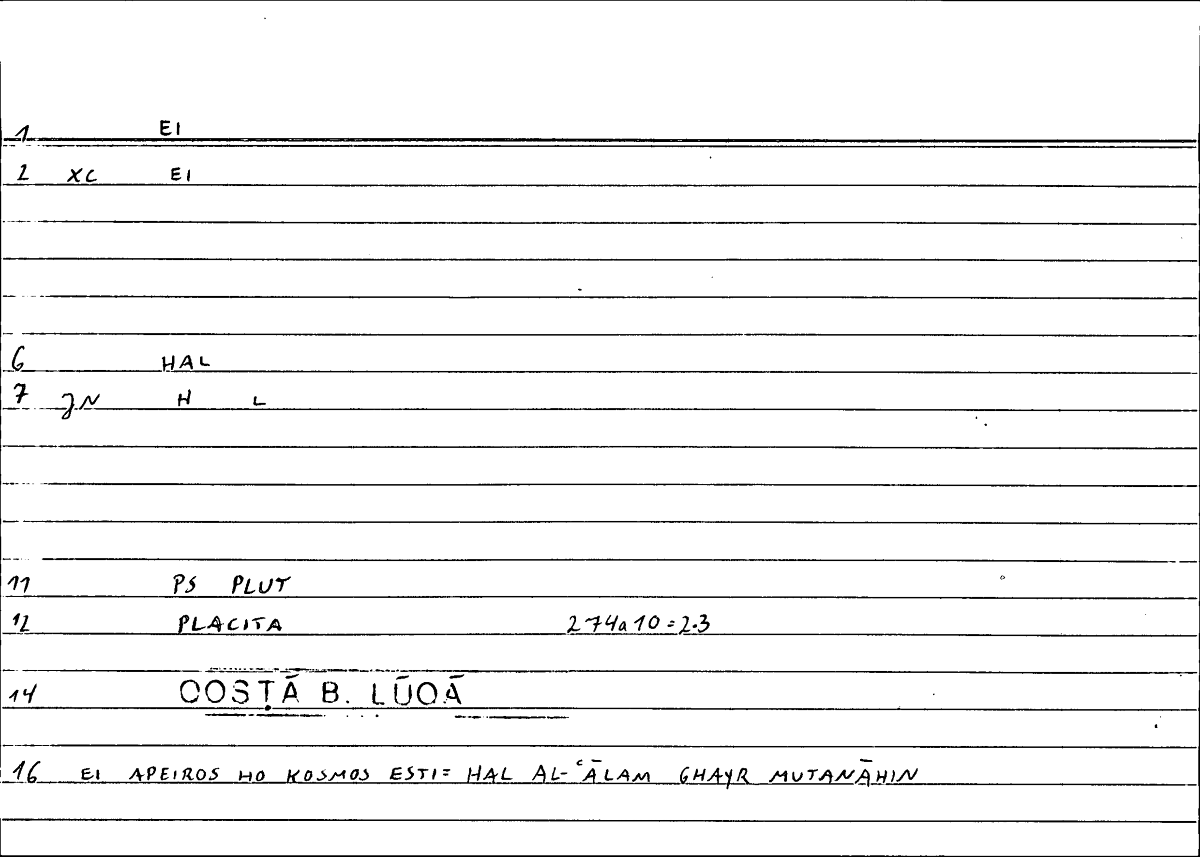 1 EI
2 XC EI
6 HAL
7 JN H L
11 PS PLUT
12 PLACITA 274a10=2.3
14 QOSṬĀ B. LŪQĀ
16 EI APEIROS HO KOSMOS ESTI= HAL AL-ʿĀLAM GHAYR MUTANĀHIN